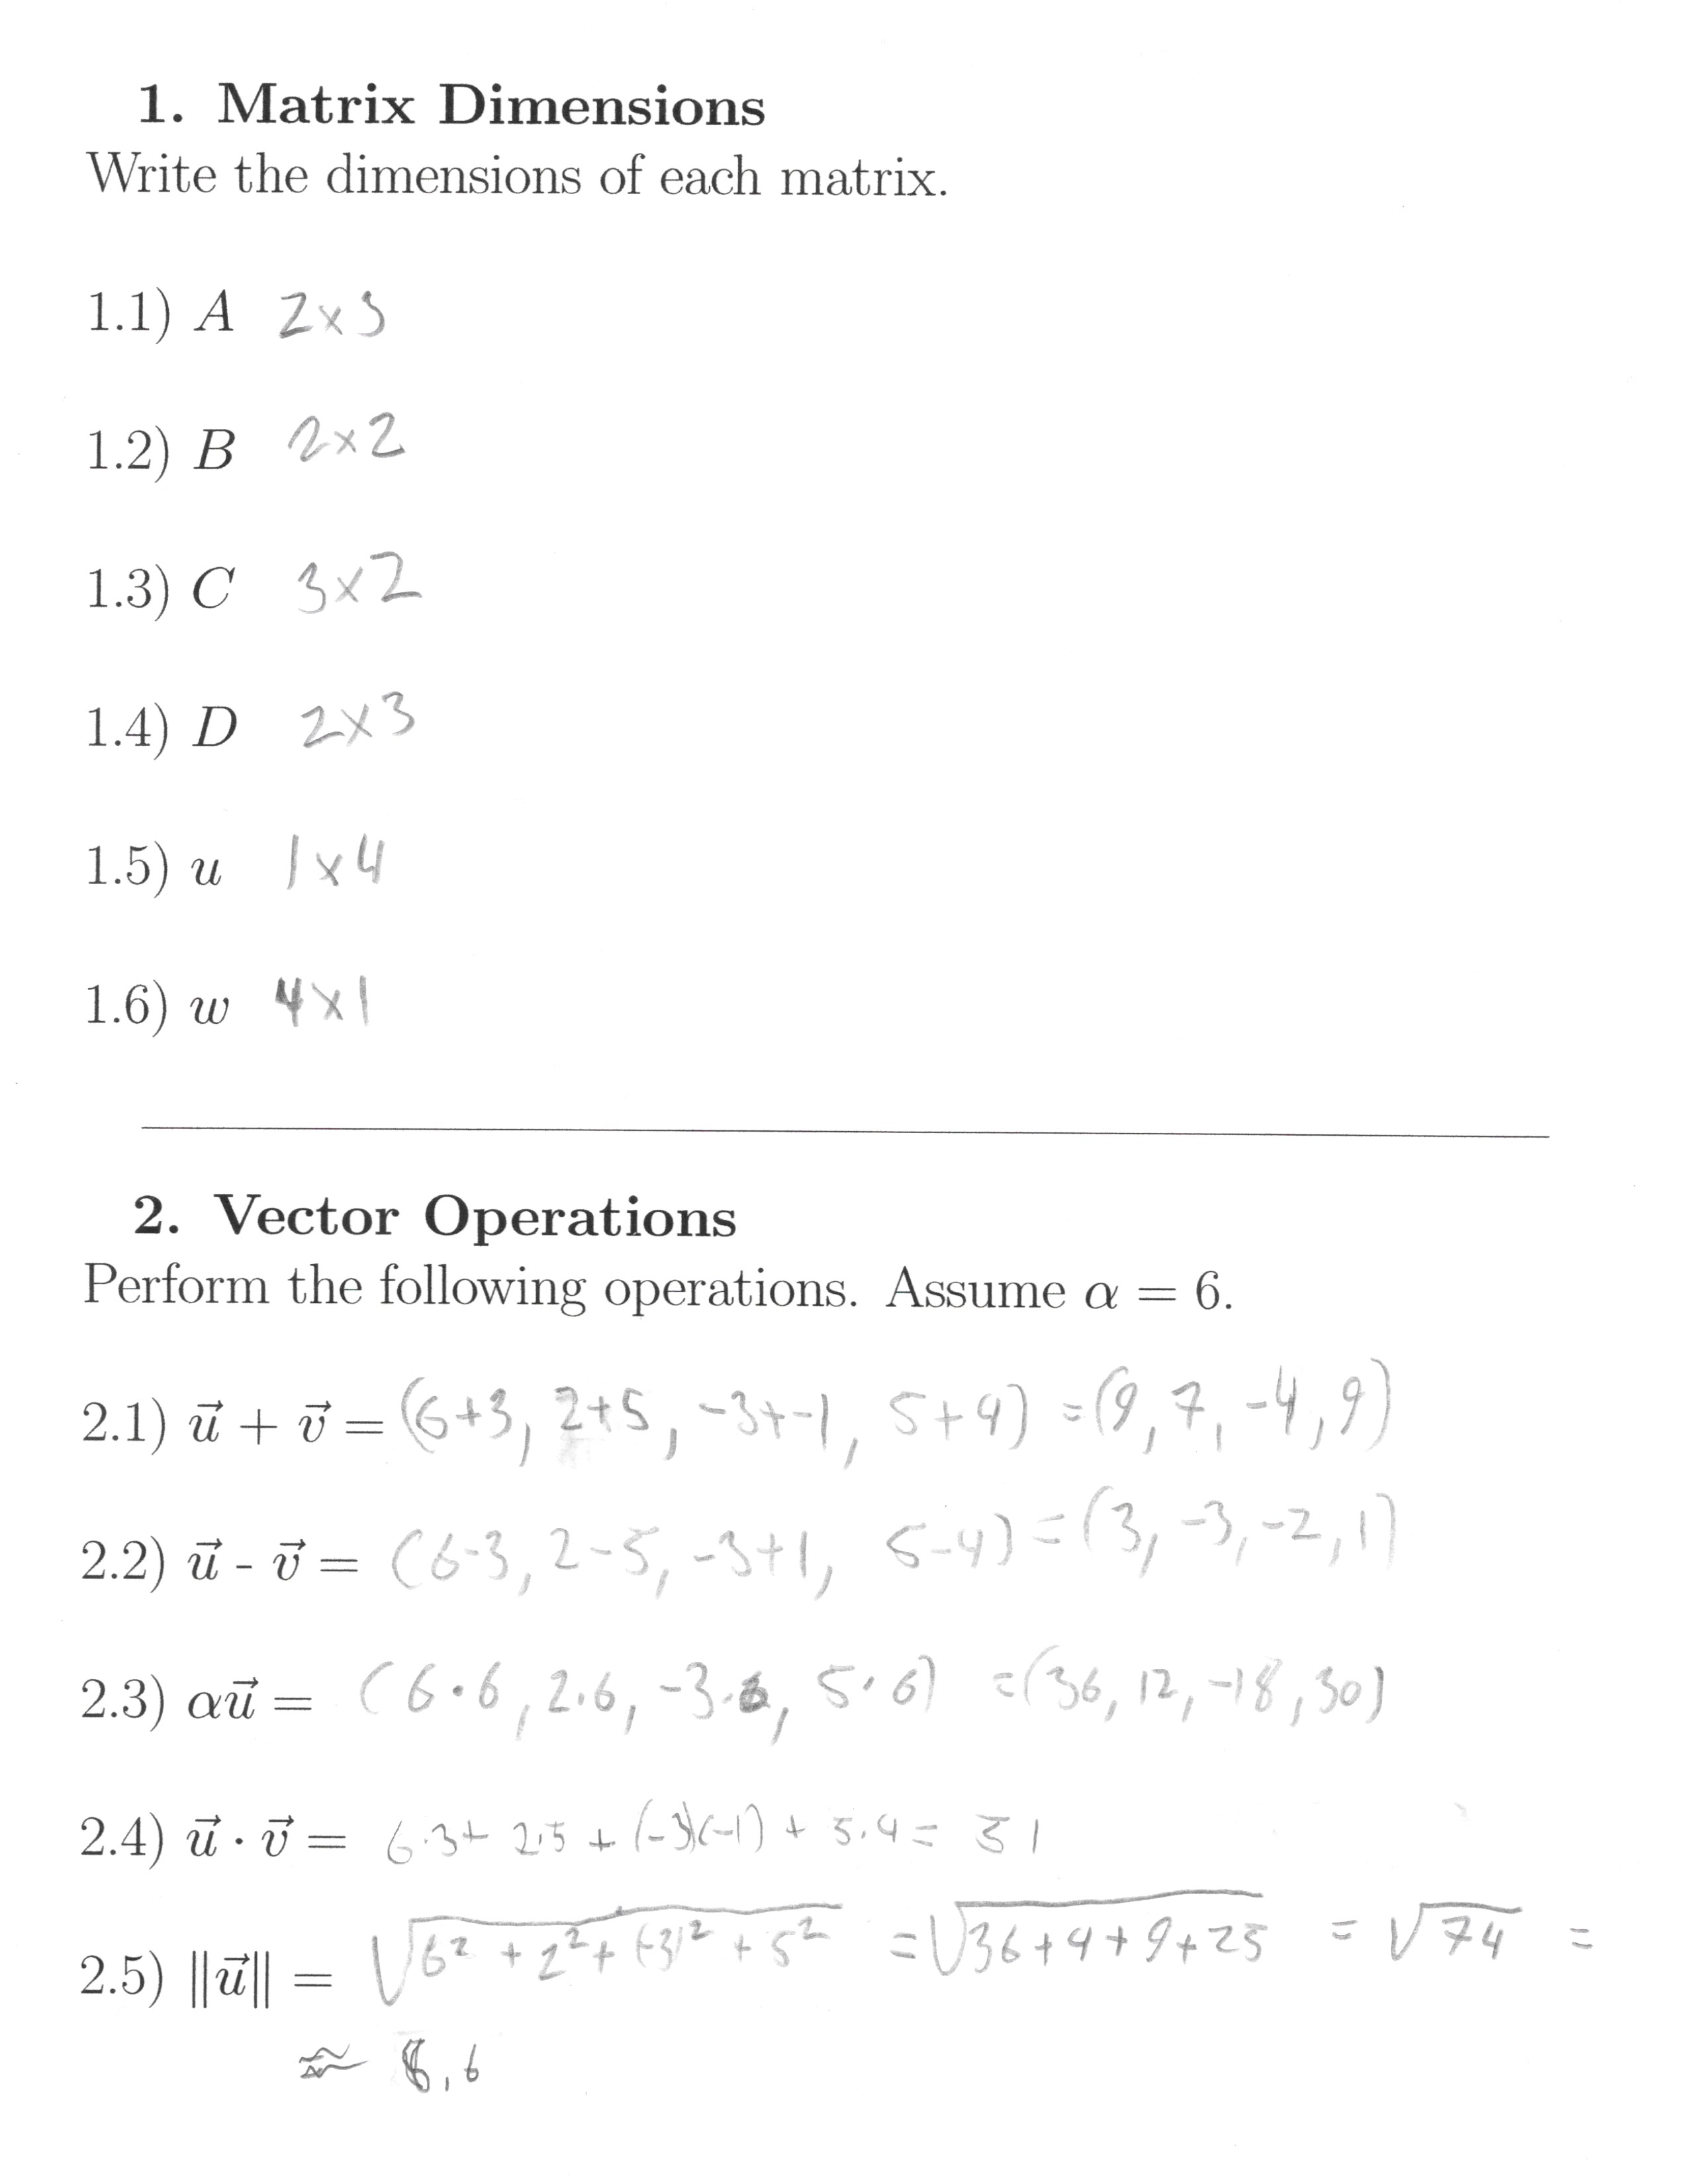 1. Matrix Dimensions
Write the dimensions of each matrix.
1.1) A 2×3
1.2) B 2×2
1.3) C 3×2
1.4) D 2×3
1.5) u 1×4
1.6) w 4×1
2. Vector Operations
Perform the following operations. Assume α = 6.
2.1) u⃗ + v⃗ = (6+3, 2+5, -3+-1, 5+4) = (9, 7, -4, 9)
2.2) u⃗ - v⃗ = (6-3, 2-5, -3+1, 5-4) = (3, -3, -2, 1)
2.3) αu⃗ = (6·6, 2·6, -3·6, 5·6) = (36, 12, -18, 30)
2.4) u⃗ · v⃗ = 6·3+ 2·5 + (-3)(-1) + 5·4 = 51
2.5) ||u⃗|| = √(6² + 2² + (-3)² + 5²) = √(36+4+9+25) = √74 =
≈ 8,6